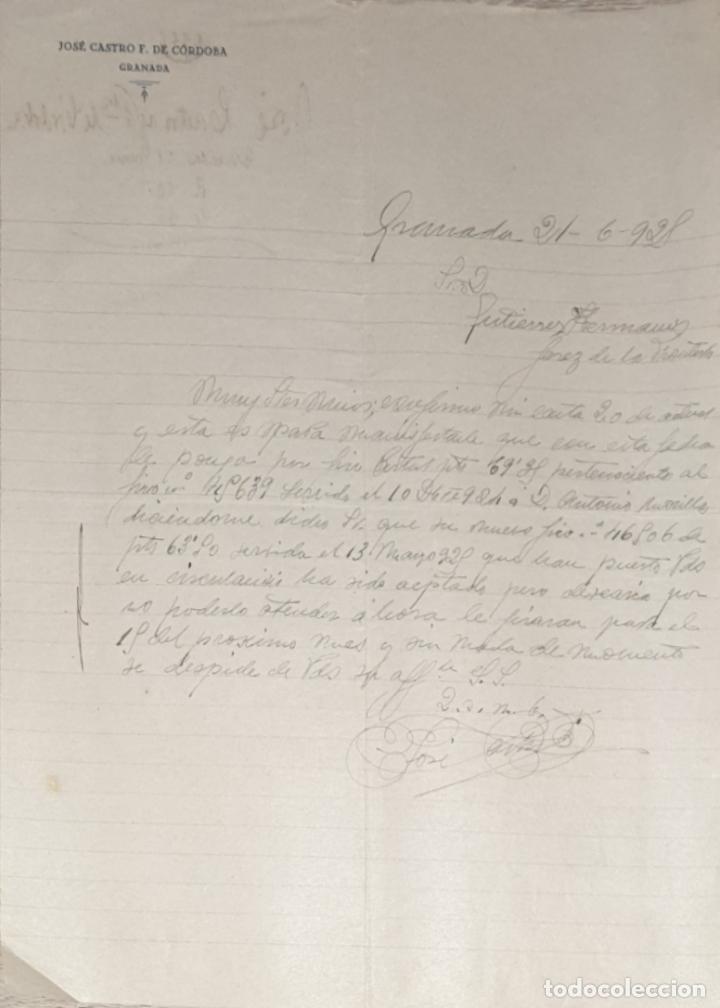 JOSÉ CASTRO F. DE CÓRDOBA
GRANADA
Granada 21-6-928
Sres D
Gutierrez Hermanos
Jerez de la Frontera
Muy Sres mios; confirmo mi carta 20 de actual
y esta es para manifestarle que con esta fecha
le pongo por Giro Postal pts 69'25 perteneciente al
giro nº servido el 10 D. Antonio
haciendome dicho Sr. que su nuevo giro nº 46806 de
pts 63'50 servida el 13 Mayo 928 que han puesto Vds
en circulación ha sido aceptado pero desearia por
no poderlo atender ahora le giraran para el
15 del proximo mes y sin nada de momento
se despide de Vds su aff S.S.
q. e. s. m.
José
todocoleccion
todocoleccion.net